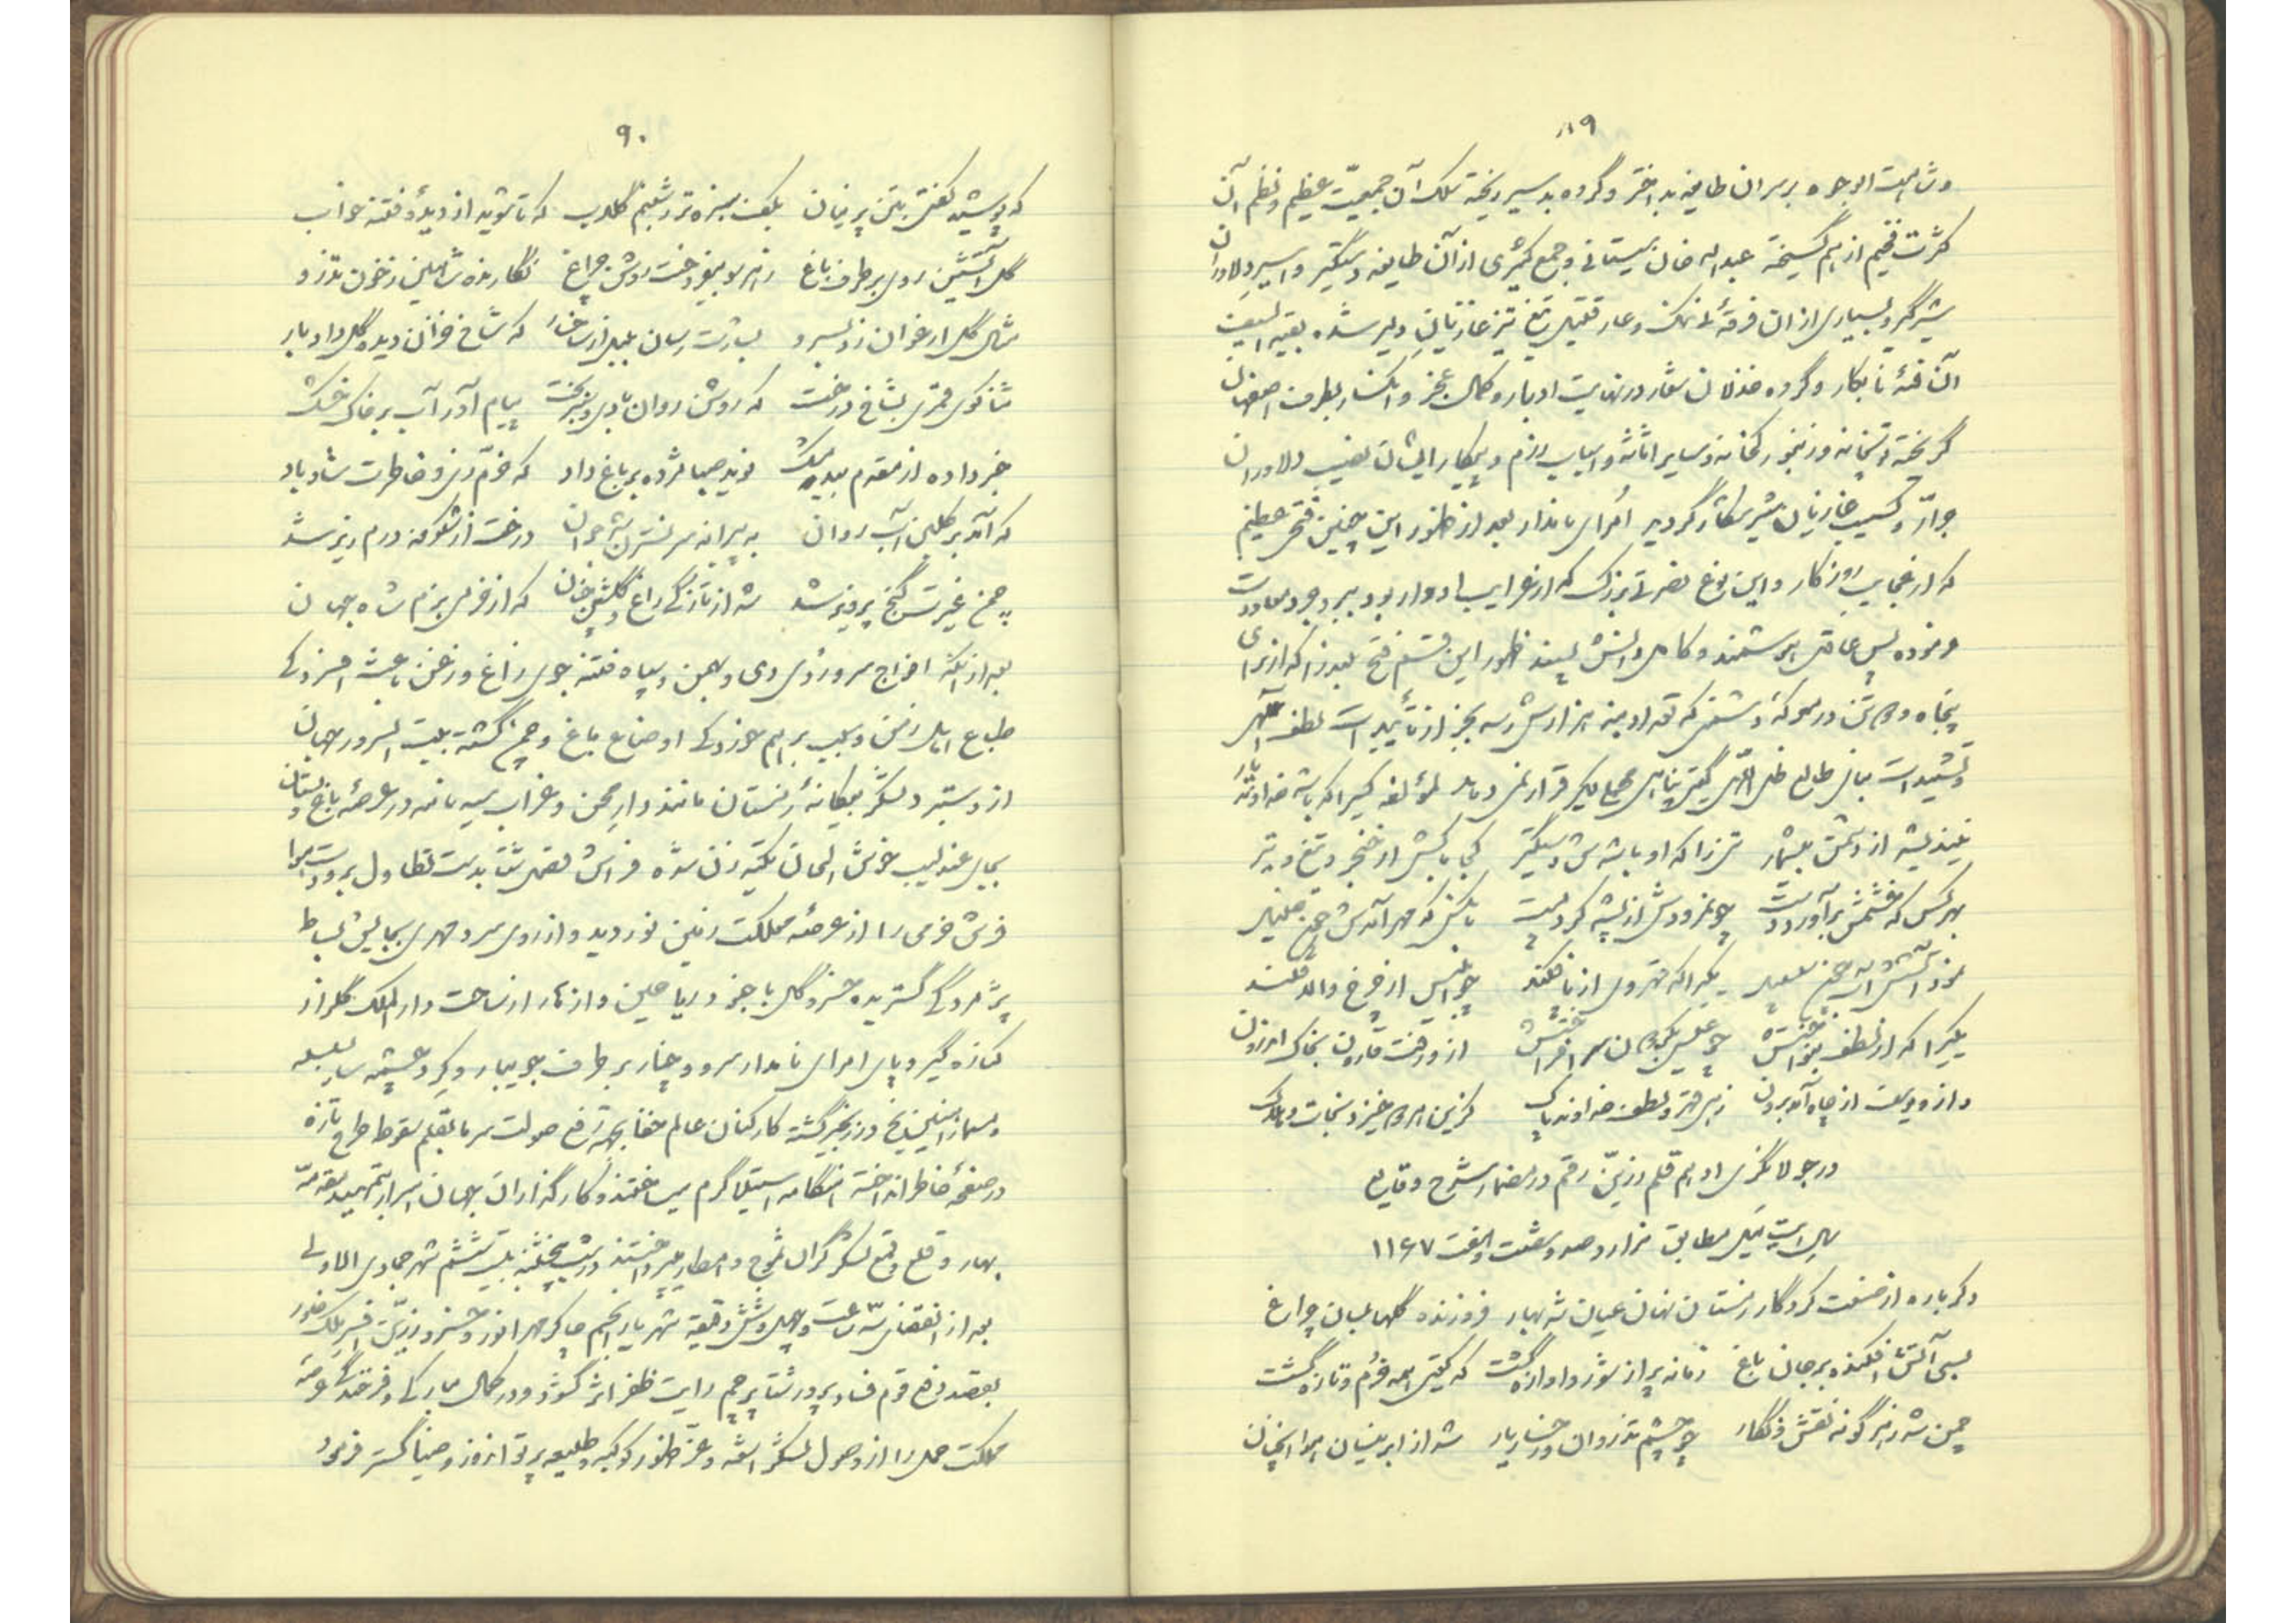 ۸۹
و شاهت الوجوه بر سران طایفه بد اختر و گروه بد سیر ریخته سلک آن جمعیّت عظیم و نظم آن
کثرت فخیم از هم گسیخته عبداله خان سیستانی و جمع کثیری از آن طایفه دستگیر و اسیر دلاوران
شیرگیر و بسیاری از ان فرقهٔ بی ننگ و عار قتیل تیغ تیز غازیان دلیر شده بقیه السیف
آن فئهٔ نابکار و گروه خذلان شعار در نهایت ادبار و کمال عجز و انکسار بطرف اصفهان
گریخته توپخانه و زنبورکخانه و سایر اثاثه و اسباب رزم و پیکار ایشان نصیب دلاوران
جرّار و کسیب غازیان شیر شکار گردید امرای نامدار بعد از ظهور این چنین فتحی عظیم
که از عجایب روزگار و این نوع نصرتی بزرگ که از غرایب ادوار بود ببروجرد معاودت
نموده پس عاقل هوشمند و کامل دانش پسند ظهور این قسم فتح بلند را که از برای
پنجاه و دو تن در معرکهٔ دشمنی که تعداد به هزارش رسد بجز از تأییدات لطف الهی
و تشییدات طالع ظل اللّهی گیتی پناهی حمل بدیگر قرار نمی دهد لمؤلفه کسیرا که باشد خداوند یار
نیندیشد از دشمن بیشمار کسی را که او باشدش دستگیر کجا باکش از خنجر و تیغ و تیر
بهر کس که خشمش برآورد دست چو نمرودش از پشه کرد پست بآنکس که مهر آمدش چون خلیل
یکی را که قهر وی از پا فکند چو ابلیس از چرخ والا فکند
یکی را که از لطف بنواختش چو عیسی بگردون سر افراختش از و رفت قارون بخاک اندرون
و از و یوسف از چاه آمد برون زهی قهر و لطف خداوند پاک کزین هر دو خیزد نجات و هلاک
در جولانگری ادهم قلم زرّین رقم در مضمار شرح وقایع
سال ایت ئیل مطابق هزار و صد و شصت و هفت ۱۱۶۷
دگر باره از صنعت کردگار زمستان نهان شد عیان شد بهار فروزنده گلها بسان چراغ
بسی آتش افکنده بر جان باغ زمانه پر از شور و آوازه گشت که گیتی همه خرّم و تازه گشت
چمن شد ز هر گونه نقش و نگار چو چشم تذروان و رخسار یار شد از ابر نیسان هوا آنچنان
۹۰
که پوشید گفتی بتن پرنیان بکف سبزه تر ز شبنم گلاب که تا شوید از دیدهٔ فتنه خواب
گل آتشین روی بر طرف باغ ز هر سو بیفروخت روشن چراغ نگارنده شاهین ز خون تذرو
مثال گل ارغوان زد بسرو بشارت رسان بلبل از شاخسار که شاخ خزان دیده گل داد بار
ثناگوی قمری بشاخ درخت که روشن روان باد و پیروز بخت پیام آور آب بر خاک خشک
خبر داده از مقدم بید مشک نوید صبا مژده بر باغ داد که خرّم زی و خاطرت شاد باد
که آمد بر گلبن آب روان به پیرانه سر نسترن شد جوان درخت از شکوفه درم ریز شد
چمن غیرت گنج پرویز شد شد از تازگی راغ و گلشن چنان که از خرمی بزم شاه جهان
بعد از آنکه افواج سرورزی دی و بهمن و سپاه فتنه جوی زاغ و زغن باعث افسردگی
طباع اهل زمن و سبب برهم خوردگی اوضاع باغ و چمن گشته بیت السرور جهان
از دستبرد لشکر بیگانهٔ زمستان مانند دار محن و غراب سیه نامه در عرصهٔ باغ و بستان
بجای عندلیب خوش الحان تکیه زن شده فراش فصل شتا بدست تطاول برودت هوا
فرش خرمی را از عرصهٔ مملکت زمین نوردید و از روی سرد مهری بجایش بساط
پژمردگی گسترید خسرو گل با جنود ریاحین و ازهار از ساحت دار الملک گلزار
کناره گیر و پای امرای نامدار سرو و چنار بر طرف جویبار و گرد چشمه سار بسلسله
و مسمار آهنین یخ در زنجیر گشته کارکنان عالم خفا بجهة رفع صولت سرما بقلم سقوط طرح تازه
در صفحهٔ خاطر انداخته هنگامه استیلا گرم میساختند و کارگذاران جهان اسرار بتمهید مقدمهٔ
بهار و قلع و قمع لشکر گران ثلوج و امطار میپرداختند در شب پنجشنبه بیست ششم شهر جمادی الاولی
بعد از انقضای سه ساعت و چهل و شش دقیقه شهریار انجم چاکر مهر انور و خسرو زرّین افسر ملک خاور
بقصد دفع قوم فساد پرور شتا پرچم رایت ظفر اثر گشوده در کمال مبارکی و فرخندگی عرصهٔ
مملکت حمل را از وصول لشکر اشعه و عزّ ظهور کوکبه و طلیعه پرتو افروز و ضیا گستر فرمود